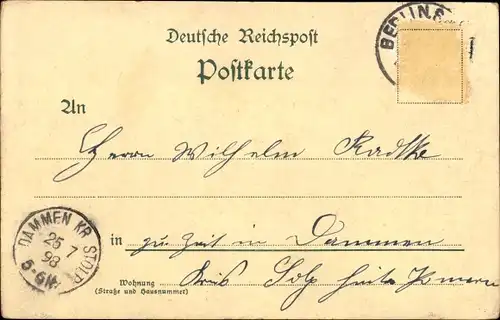 Deutsche Reichspost
Postkarte
BERLIN.S.
An
Herrn Wilhelm Radtke
DAMMEN KR. STOLP
25 7
98
5-6N
in zu Zeit in Dammen
Wohnung
(Straße und Hausnummer)
Kreis Stolp